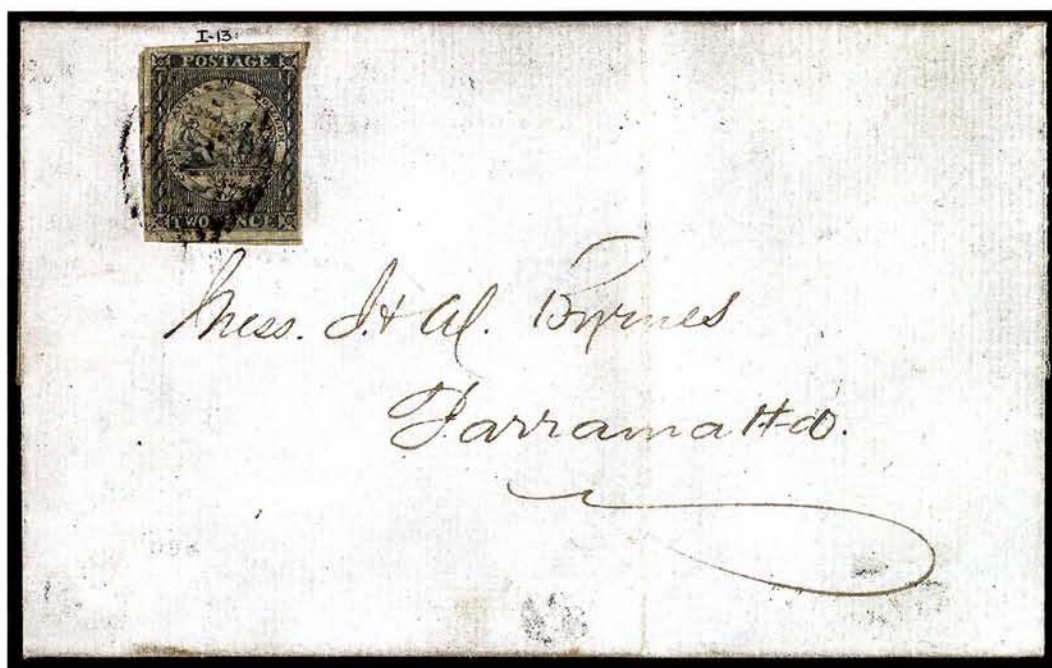 I-13
POSTAGE
TWO PENCE
Mess. J. & W. Byrnes
Parramatta.